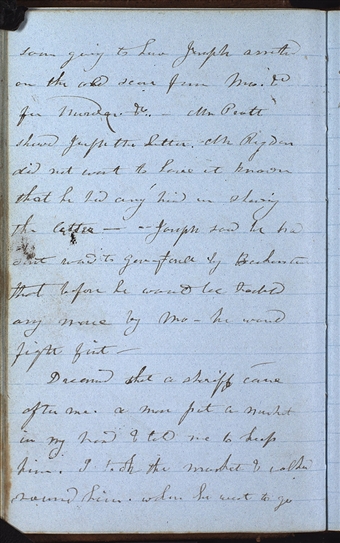 some going to have Joseph arrested
on the old score from Mo. &c
for Murder &c. — Mr Pratt
shewd Joseph the letter. Mr Rigdon
did not want to have it known
that he had any hand in shewing
the letter — Joseph said he had
sent word to Gov Ford by Backenstos
that before he would be troubled
any more by Mo — he would
fight first —
Dreamd that a sheriff came
after me. a man put a musket
in my hand & told me to keep
him. I took the musket & walked
around him. when he went to go